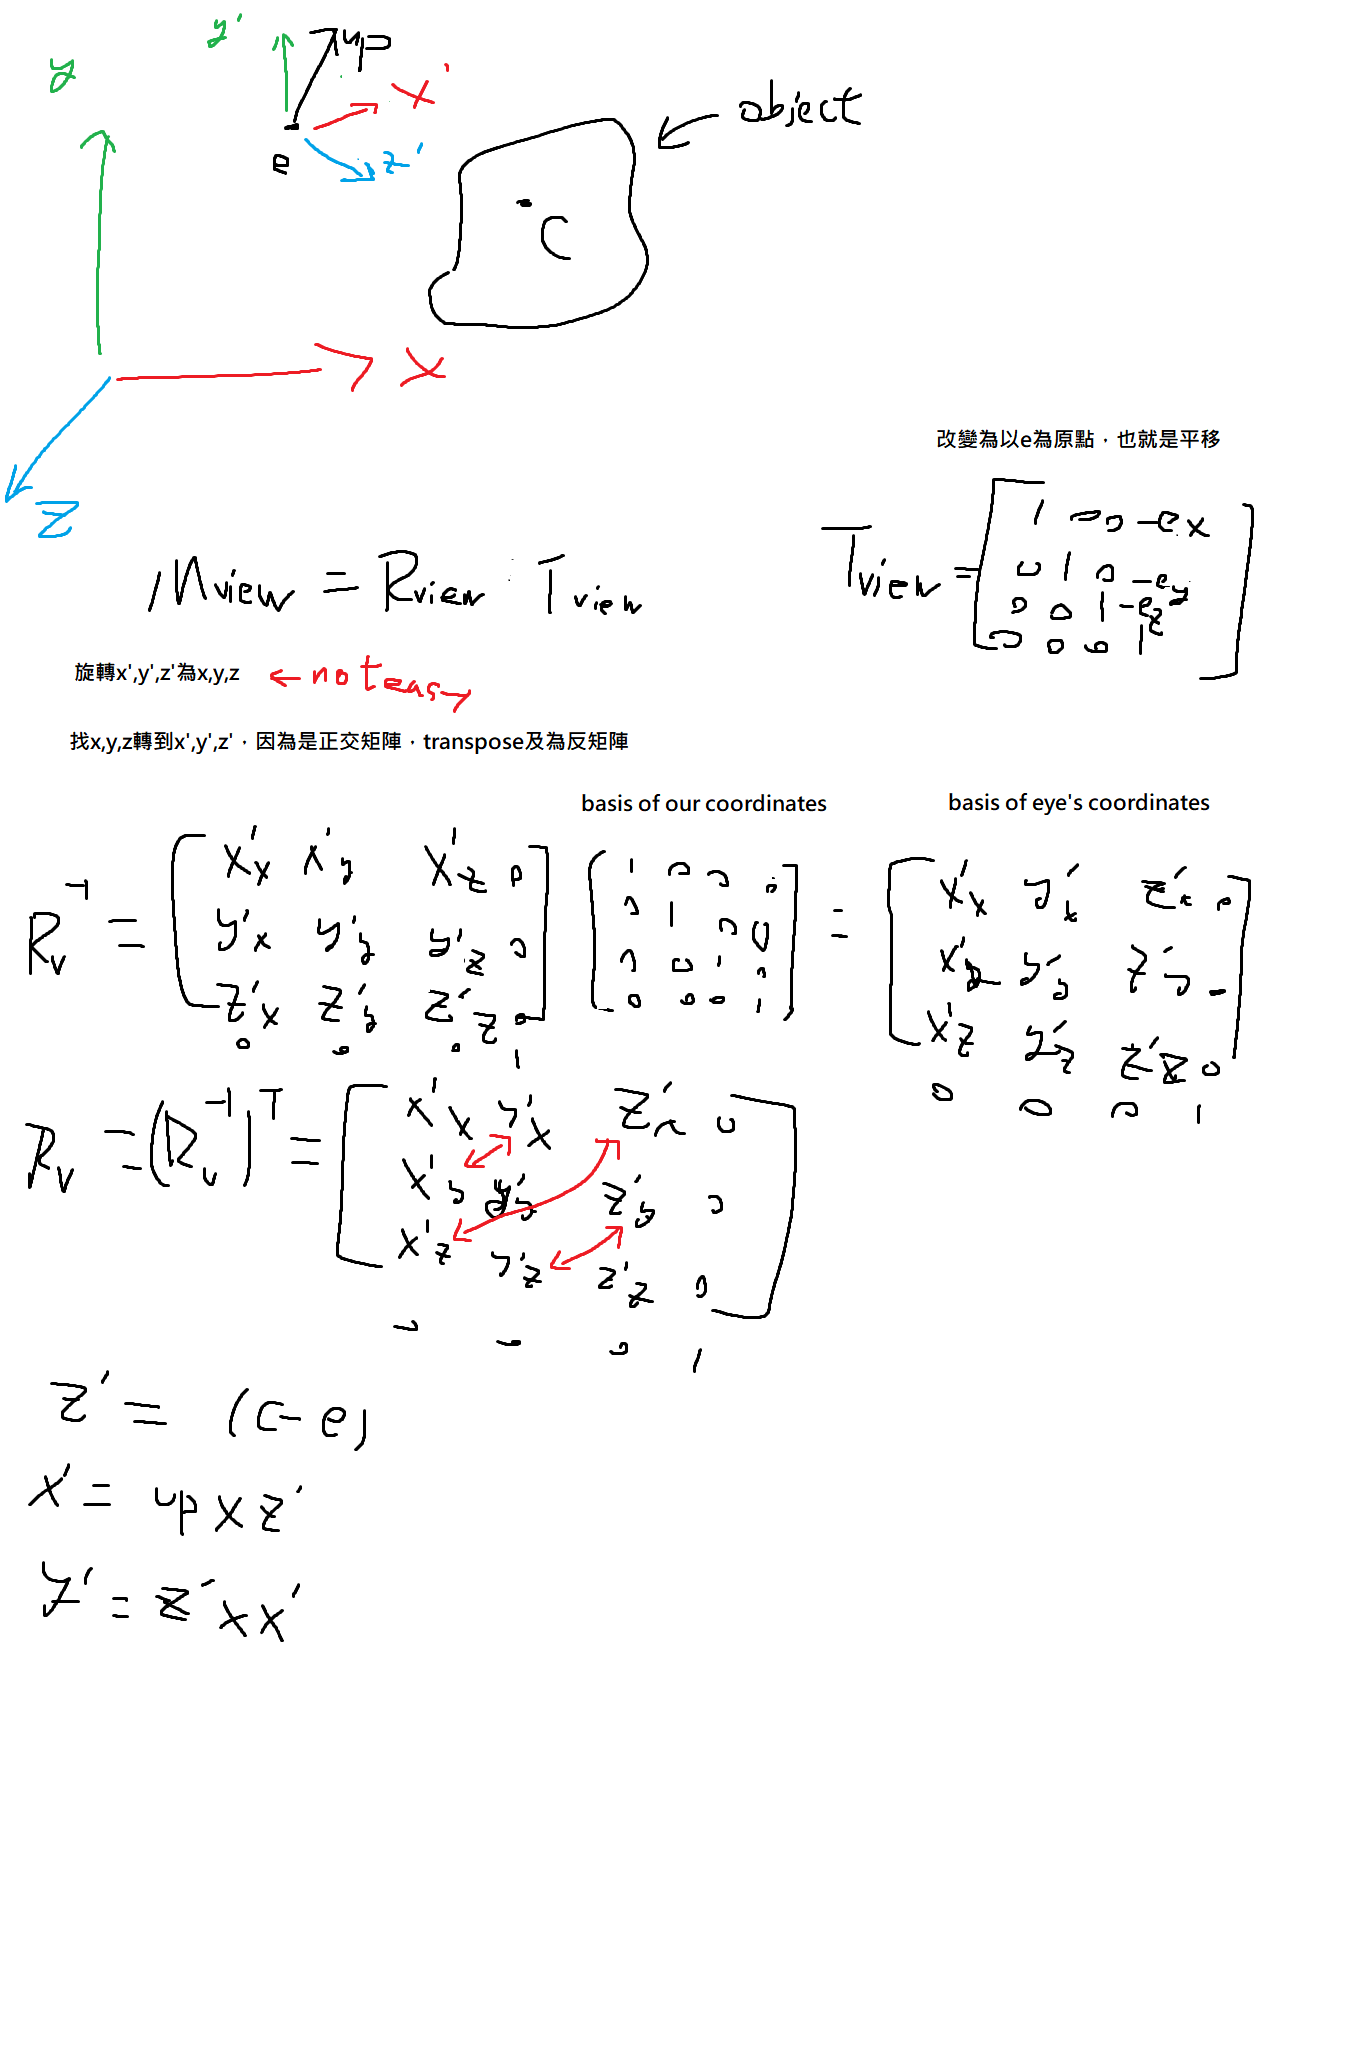 y'
up
x'
y
e
z'
object
C
x
z
改變為以e為原點，也就是平移
Tview = [ 1 0 0 -ex
0 1 0 -ey
0 0 1 -ez
0 0 0 1 ]
Mview = Rview · Tview
旋轉x',y',z'為x,y,z ← not easy
找x,y,z轉到x',y',z'，因為是正交矩陣，transpose及為反矩陣
basis of our coordinates
basis of eye's coordinates
Rv^-1 = [ x'x x'y x'z 0 ] [ 1 0 0 0 ] = [ x'x y'x z'x 0 ]
y'x y'y y'z 0 0 1 0 0 x'y y'y z'y 0
z'x z'y z'z 0 0 0 1 0 x'z y'z z'z 0
0 0 0 1 0 0 0 1 0 0 0 1
Rv = (Rv^-1)^T = [ x'x y'x z'x 0
x'y y'y z'y 0
x'z y'z z'z 0 ]
0 0 0 1
z' = (c-e)
x' = up x z'
y' = z' x x'